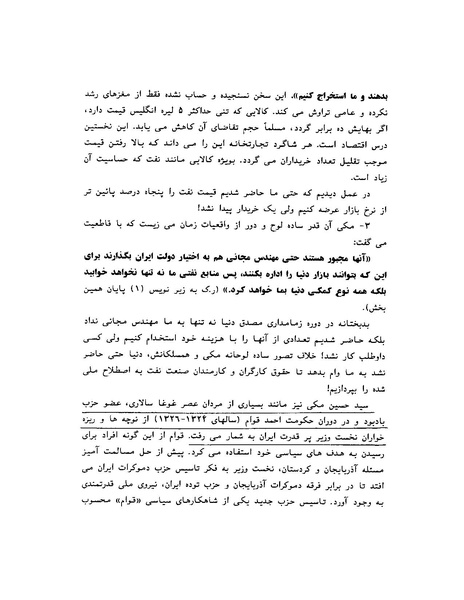 بدهند و ما استخراج کنیم». این سخن نسنجیده و حساب نشده فقط از مغزهای رشد
نکرده و عامی تراوش می کند. کالایی که تنی حداکثر ۵ لیره انگلیس قیمت دارد،
اگر بهایش ده برابر گردد، مسلماً حجم تقاضای آن کاهش می یابد. این نخستین
درس اقتصاد است. هر شاگرد تجارتخانه این را می داند که بالا رفتن قیمت
موجب تقلیل تعداد خریداران می گردد. بویژه کالایی مانند نفت که حساسیت آن
زیاد است.
در عمل دیدیم که حتی ما حاضر شدیم قیمت نفت را پنجاه درصد پائین تر
از نرخ بازار عرضه کنیم ولی یک خریدار پیدا نشد!
۳- مکی آن قدر ساده لوح و دور از واقعیات زمان می زیست که با قاطعیت
می گفت:
«آنها مجبور هستند حتی مهندس مجانی هم به اختیار دولت ایران بگذارند برای
این که بتوانند بازار دنیا را اداره بکنند، پس منابع نفتی ما نه تنها نخواهد خوابید
بلکه همه نوع کمکی دنیا بما خواهد کرد.» (ر.ک به زیر نویس (۱) پایان همین
بخش).
بدبختانه در دوره زمامداری مصدق دنیا نه تنها به ما مهندس مجانی نداد
بلکه حاضر شدیم تعدادی از آنها را با هزینه خود استخدام کنیم ولی کسی
داوطلب کار نشد! خلاف تصور ساده لوحانه مکی و همسلکانش، دنیا حتی حاضر
نشد به ما وام بدهد تا حقوق کارگران و کارمندان صنعت نفت به اصطلاح ملی
شده را بپردازیم!
سید حسین مکی نیز مانند بسیاری از مردان عصر غوغا سالاری، عضو حزب
بادبود و در دوران حکومت احمد قوام (سالهای ۱۳۲۴-۱۳۲۶) از نوچه ها و ریزه
خواران نخست وزیر پر قدرت ایران به شمار می رفت. قوام از این گونه افراد برای
رسیدن به هدف های سیاسی خود استفاده می کرد. پیش از حل مسالمت آمیز
مسئله آذربایجان و کردستان، نخست وزیر به فکر تاسیس حزب دموکرات ایران می
افتد تا در برابر فرقه دموکرات آذربایجان و حزب توده ایران، نیروی ملی قدرتمندی
به وجود آورد. تاسیس حزب جدید یکی از شاهکارهای سیاسی «قوام» محسوب